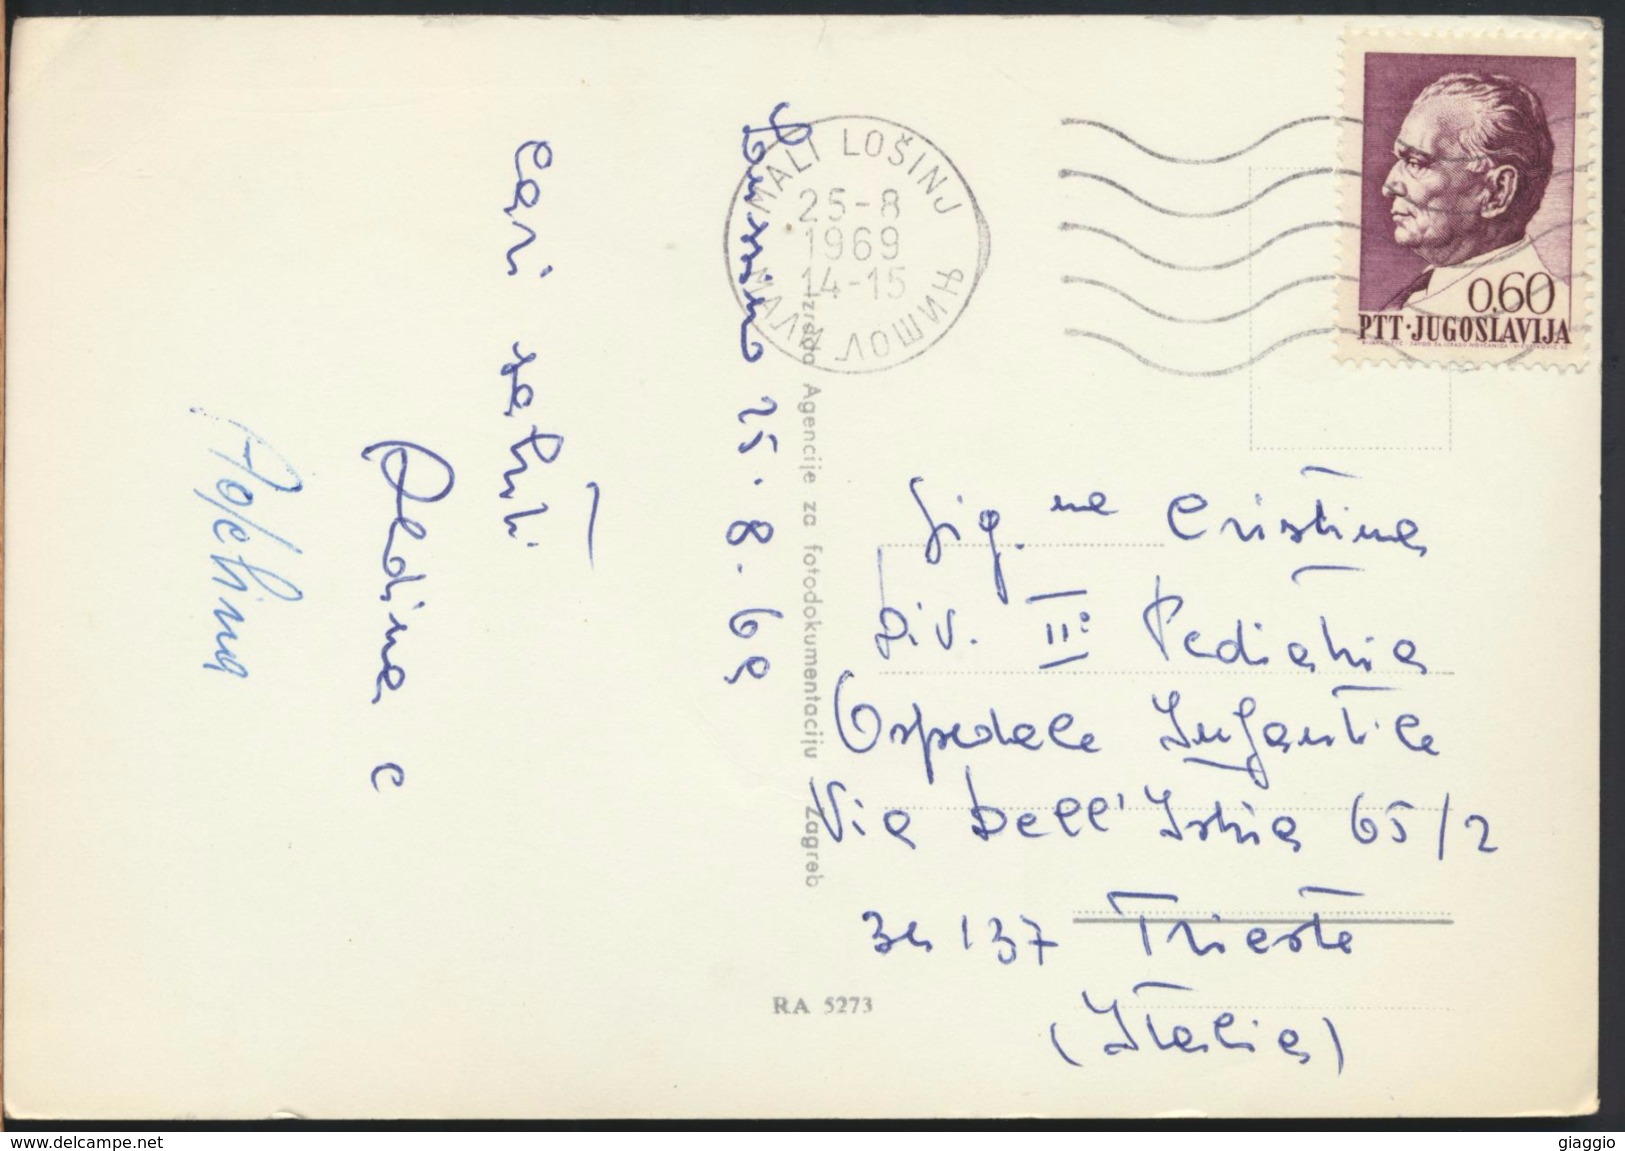 Lussino 25.8.69
Cari saluti.
Aldina e
MALI LOŠINJ
25-8
1969
14-15
МАЛИ ЛОШИЊ
0,60
PTT·JUGOSLAVIJA
Izrada Agencije za fotodokumentaciju Zagreb
Sig.na Cristina
Div. II° Pediatria
Ospedale Infantile
Via dell'Istria 65/2
34137 Trieste
(Italia)
RA 5273
www.delcampe.net
giaggio